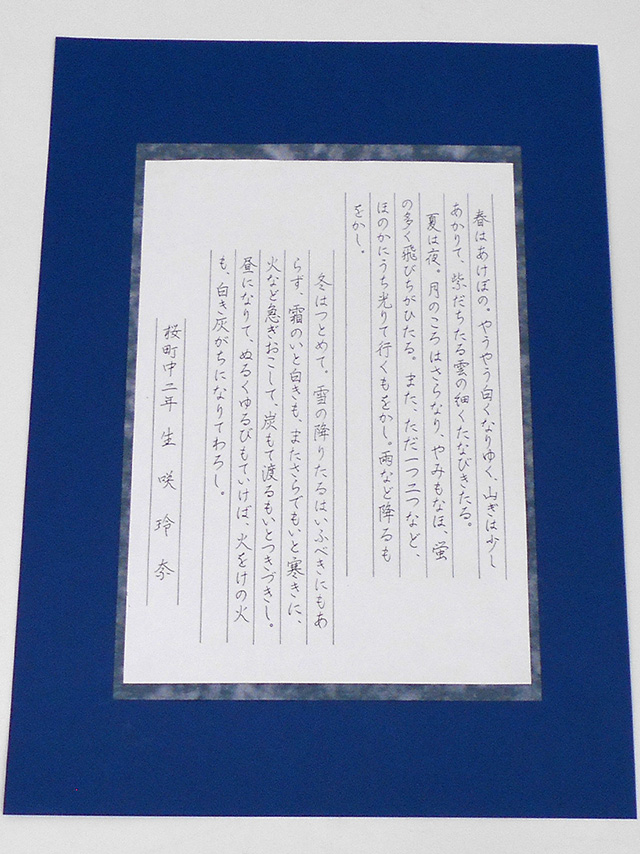 春はあけぼの。やうやう白くなりゆく、山ぎは少し
あかりて、紫だちたる雲の細くたなびきたる。
夏は夜。月のころはさらなり、やみもなほ、蛍
の多く飛びちがひたる。また、ただ一つ二つなど、
ほのかにうち光りて行くもをかし。雨など降るも
をかし。
冬はつとめて。雪の降りたるはいふべきにもあ
らず、霜のいと白きも、またさらでもいと寒きに、
火など急ぎおこして、炭もて渡るもいとつきづきし。
昼になりて、ぬるくゆるびもていけば、火をけの火
も、白き灰がちになりてわろし。
桜町中二年 生咲玲奈